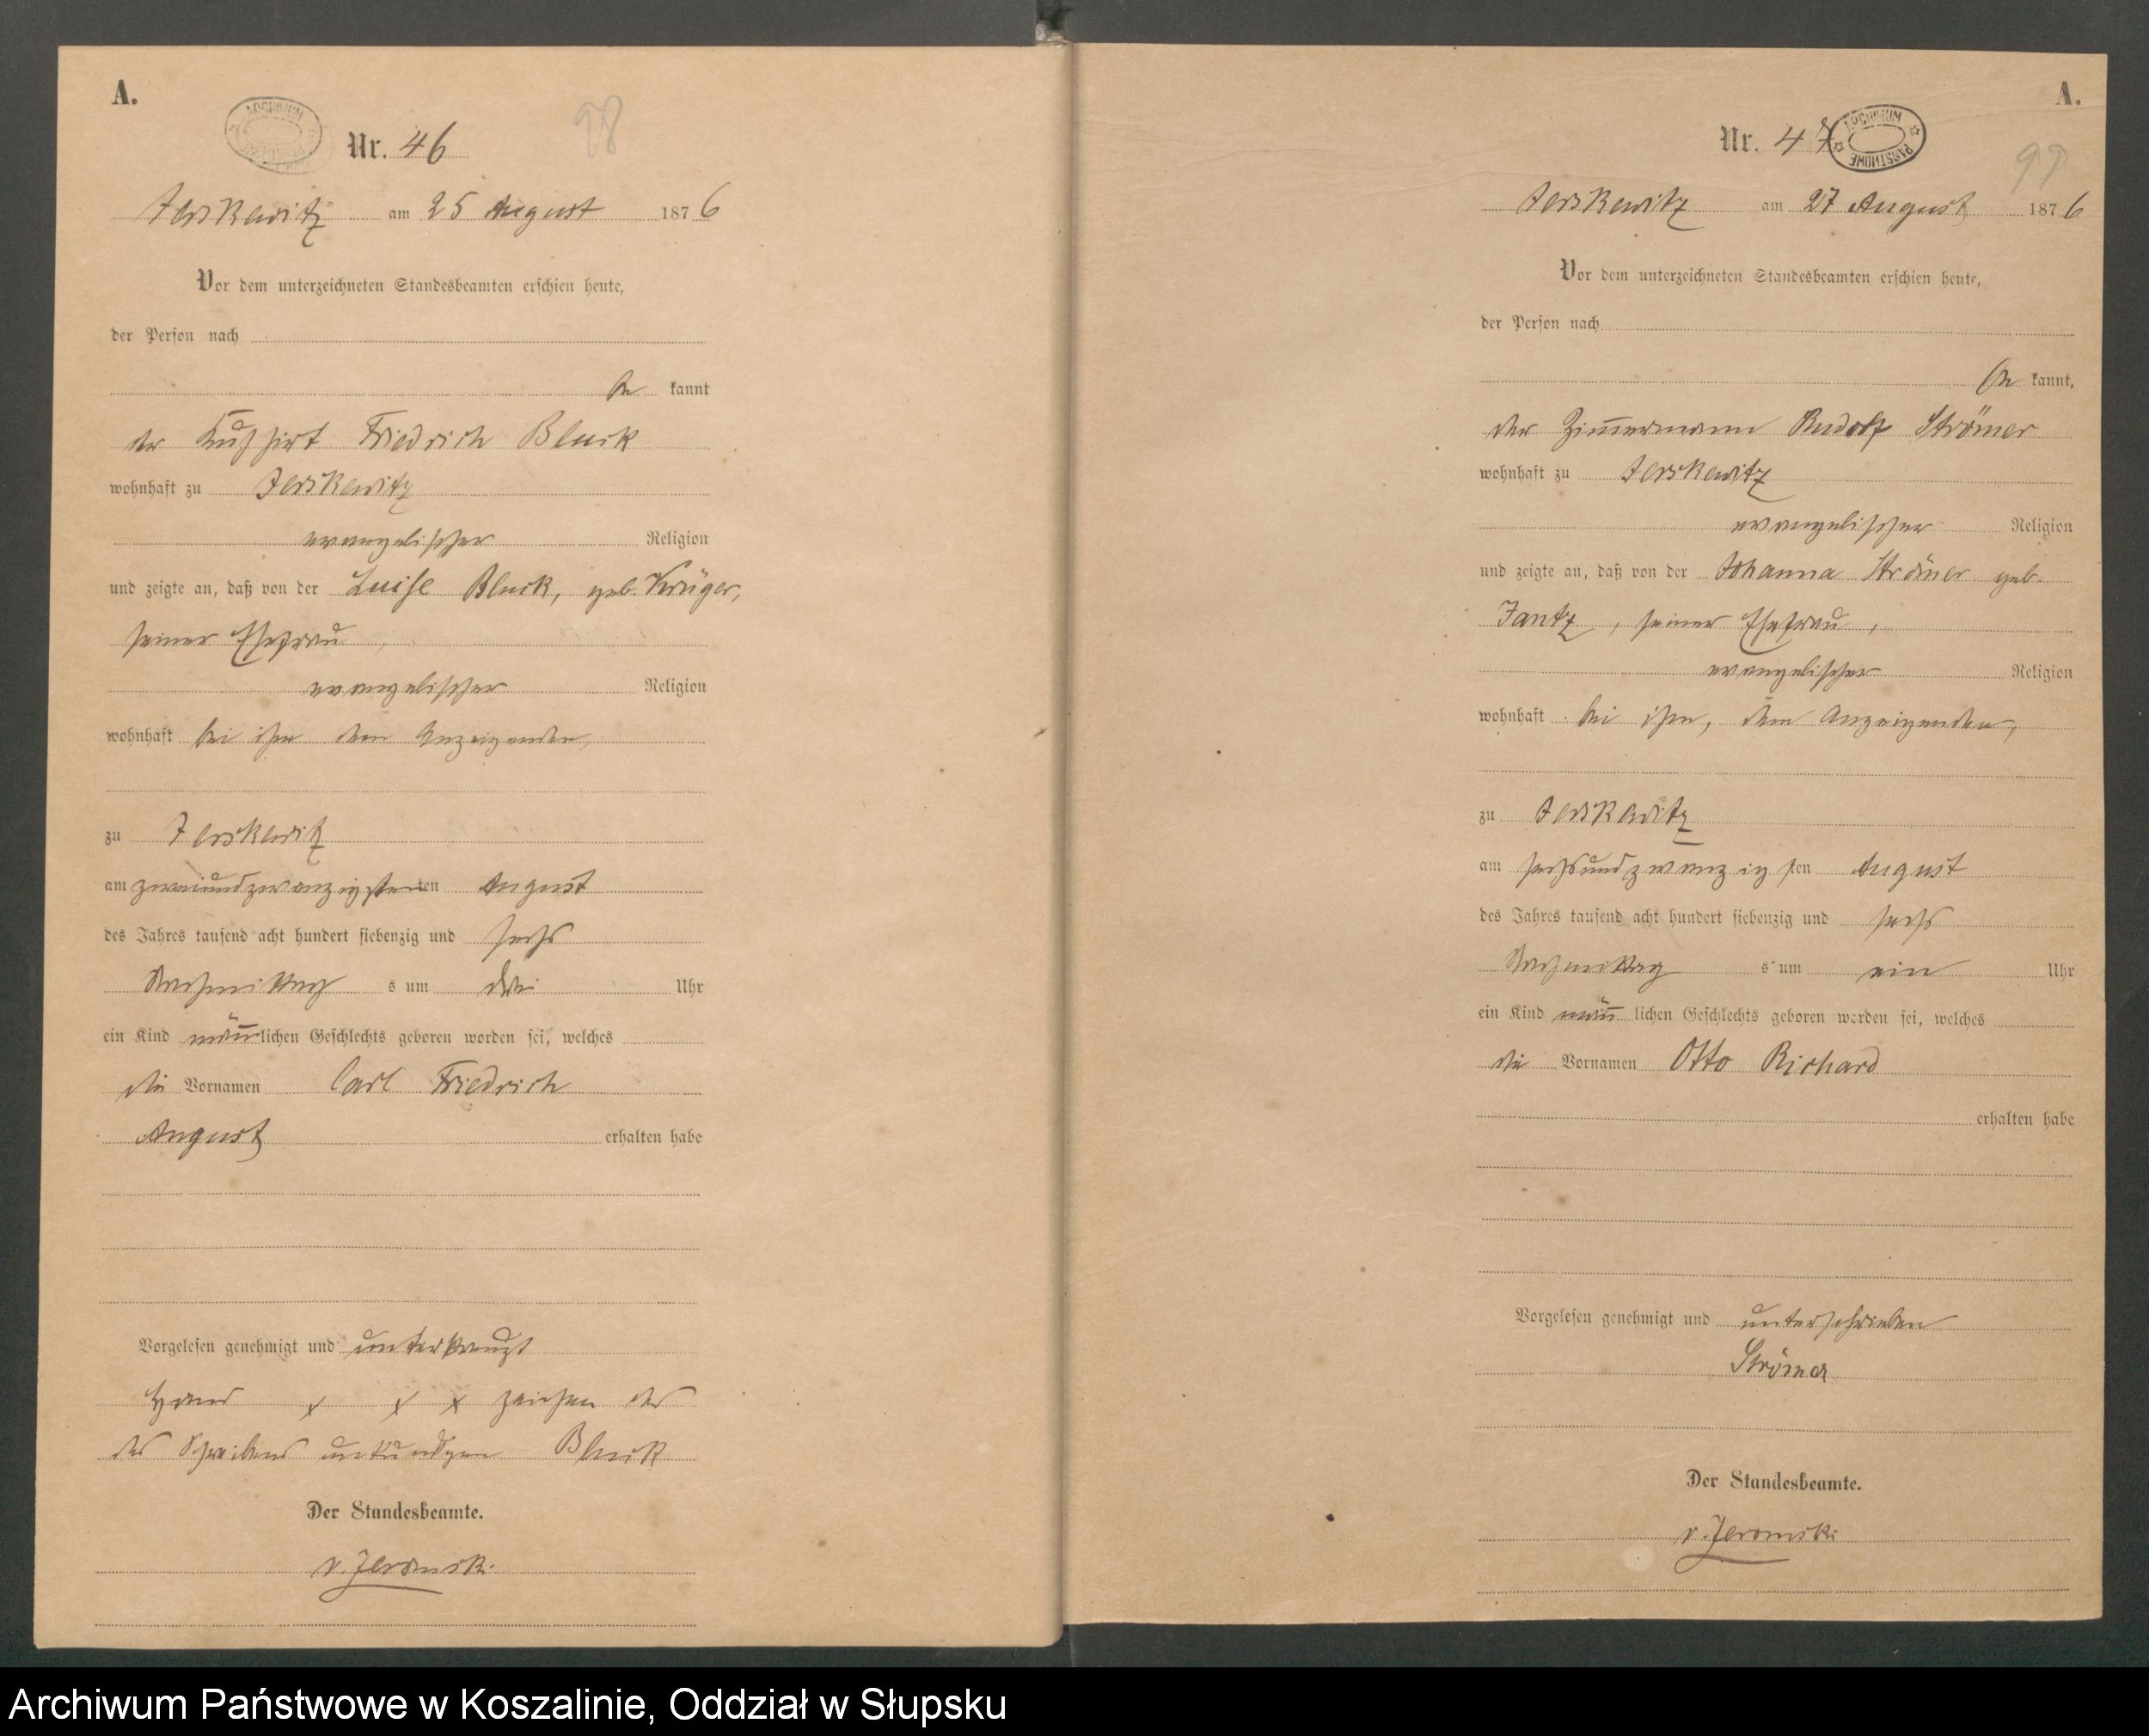 A.
ARCHIWUM PAŃSTWOWE
98
Nr. 46
Jerskewitz am 25 August 1876
Vor dem unterzeichneten Standesbeamten erschien heute,
der Person nach
be kannt
der Kuhhirt Friedrich Bluck
wohnhaft zu Jerskewitz
evangelischer Religion
und zeigte an, daß von der Luise Bluck, geb. Krüger,
seiner Ehefrau,
evangelischer Religion
wohnhaft bei ihm dem Anzeigenden,
zu Jerskewitz
am zweiundzwanzigsten ten August
des Jahres tausend acht hundert siebenzig und sechs
Nachmittag s um drei Uhr
ein Kind männlichen Geschlechts geboren worden sei, welches
die Vornamen Carl Friedrich
August erhalten habe
Vorgelesen genehmigt und unterkreuzt
Hand x x x zeichen des
des Schreibens unkundigen Bluck
Der Standesbeamte.
v. Jeromski
A.
ARCHIWUM PAŃSTWOWE
99
Nr. 47
Jerskewitz am 27 August 1876
Vor dem unterzeichneten Standesbeamten erschien heute,
der Person nach
be kannt,
der Zimmermann Rudolf Strömer
wohnhaft zu Jerskewitz
evangelischer Religion
und zeigte an, daß von der Johanna Strömer geb.
Jantz, seiner Ehefrau,
evangelischer Religion
wohnhaft bei ihm, dem Anzeigenden,
zu Jerskewitz
am sechsundzwanzig sten August
des Jahres tausend acht hundert siebenzig und sechs
Nachmittag s um ein Uhr
ein Kind männ lichen Geschlechts geboren worden sei, welches
die Vornamen Otto Richard
erhalten habe
Vorgelesen genehmigt und unterschrieben
Strömer
Der Standesbeamte.
v. Jeromski
Archiwum Państwowe w Koszalinie, Oddział w Słupsku